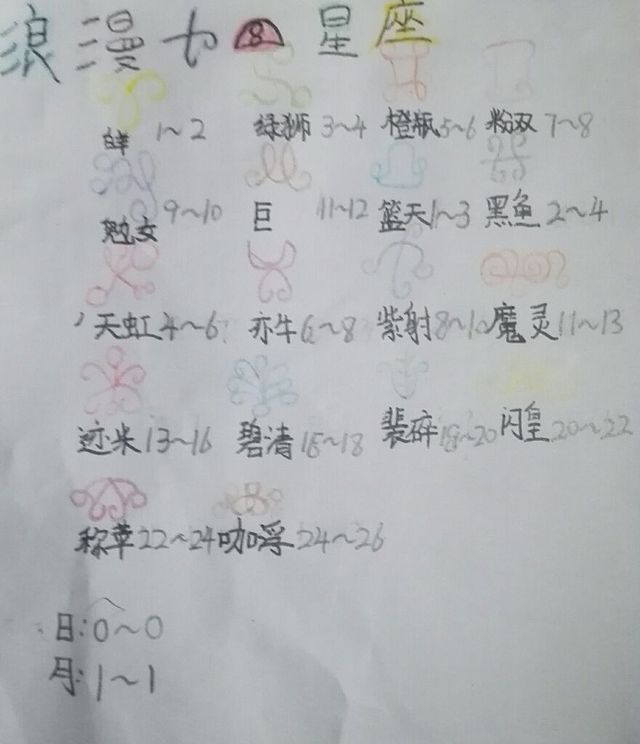 浪漫十8星座
白羊 1~2 绿狮 3~4 橙瓶5~6 粉双 7~8
处女 9~10 巨 11~12 篮天1~3 黑鱼 2~4
天虹4~6 亦牛6~8 紫射8~10魔灵11~13
迹米13~16 碧清16~18 裴碎18~20闪皇20~22
称草22~24咖浮24~26
日:0~0
月:1~1